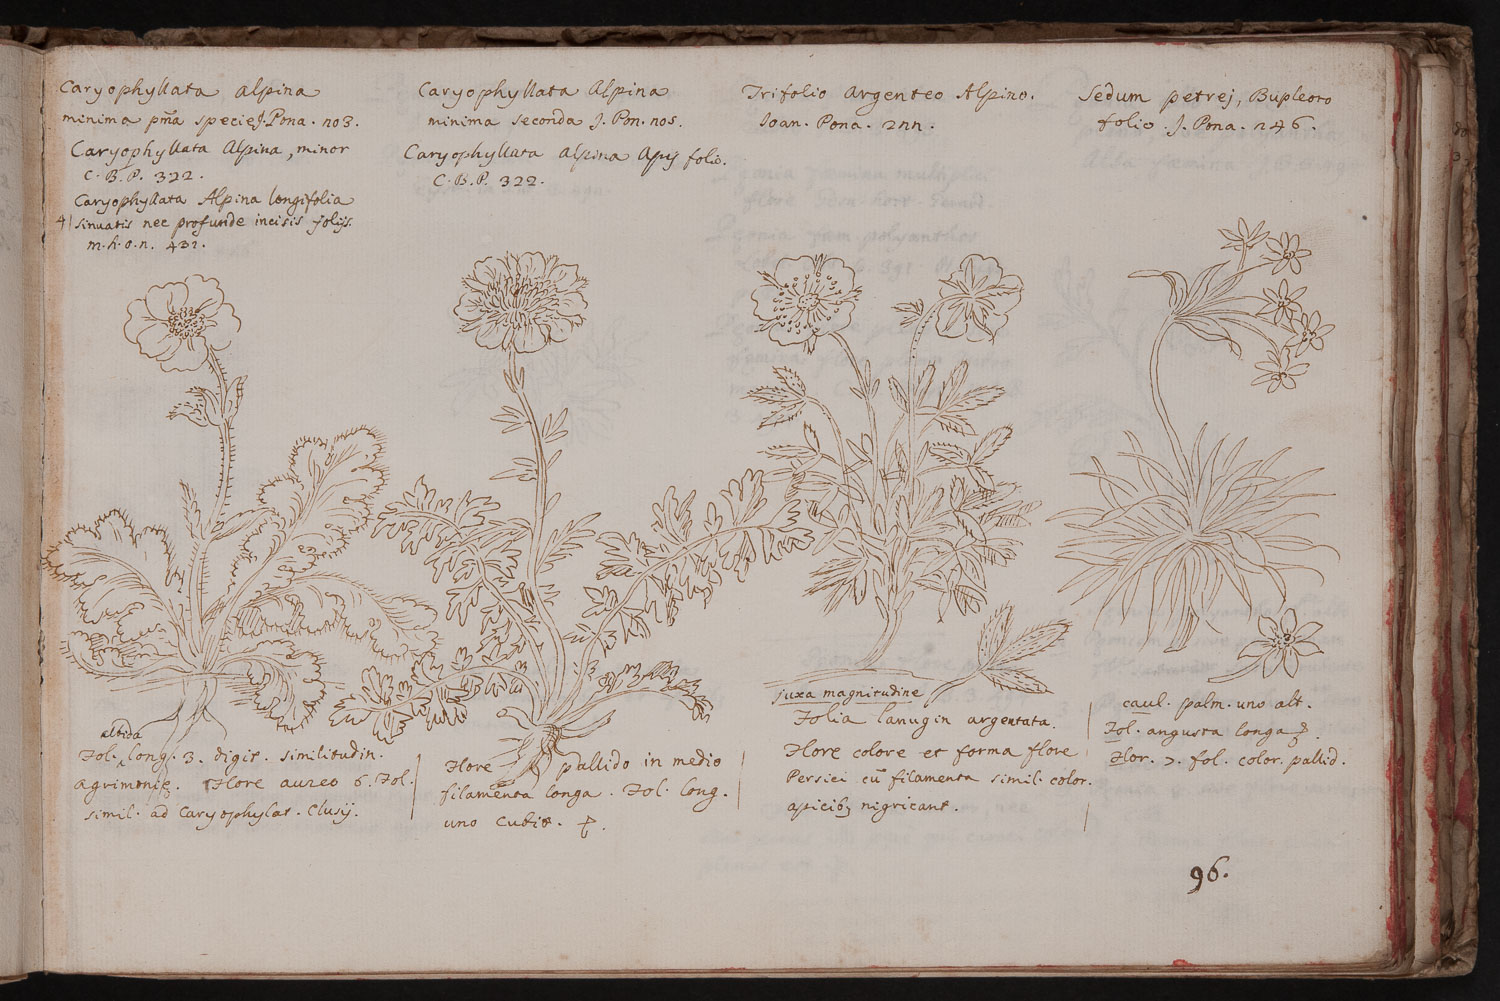 Caryophyllata alpina
minima pma specie J. Pona. no3.
Caryophyllata Alpina, minor
C. B. P. 322.
Caryophyllata Alpina longifolia
4| sinuatis nec profunde incisis folijs.
m. h. o. n. 431.
Caryophyllata Alpina
minima seconda J. Pon. nos.
Caryophyllata alpina Apij folio.
C. B. P. 322.
Trifolio argenteo Alpino.
Ioan. Pona. 2nn.
Sedum petrej, Bupleoro
folio. J. Pona. n46.
albida
Fol. long. 3. digit. similitudin.
agrimonię. Flore aureo 6. Fol.
simil. ad Caryophylat. Clusij.
Flore pallido in medio
filamenta longa. Fol. long.
uno cubit.
juxa magnitudine
Folia lanugin argentata.
Flore colore et forma flore
Persici cū filamenta simil. color.
apicibȝ nigricant.
caul. palm. uno alt.
Fol. angusta longa
Flor. 7. fol. color. pallid.
96.